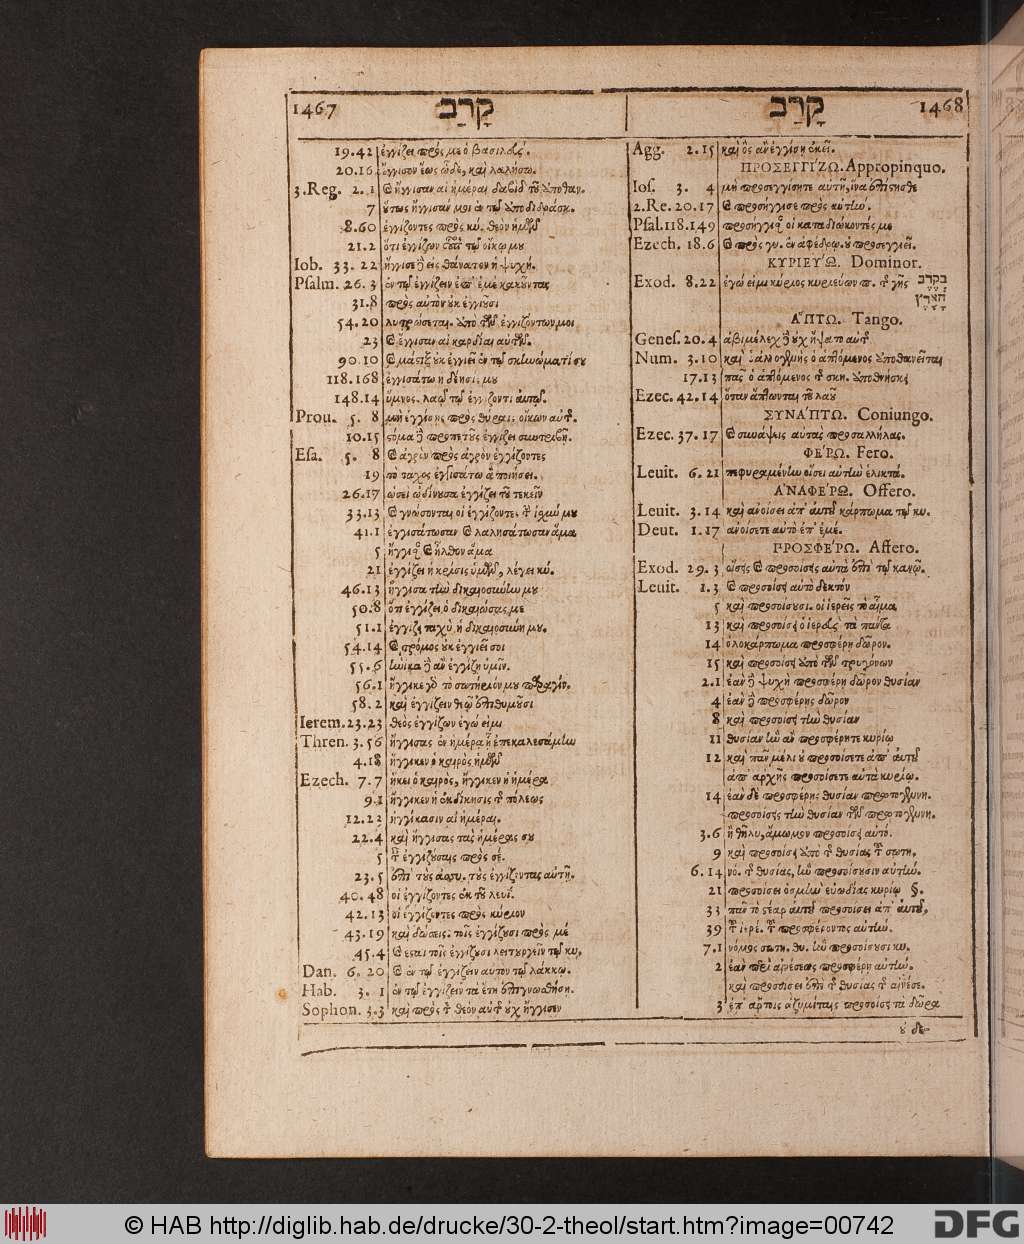 1467 קָרַב
19.42 ἐγγίζει πρός με ὁ βασιλεύς.
20.16 ἔγγισον ἕως ὧδε, καὶ λαλήσω.
3.Reg. 2.1 καὶ ἤγγισαν αἱ ἡμέραι δαβὶδ τοῦ ἀποθαν.
7 οὕτως ἤγγισάν μοι ἐν τῷ ἀποδιδράσκ.
8.60 ἐγγίζοντες πρὸς κύ. θεὸν ἡμῶν
21.2 ὅτι ἐγγίζων οὗτος τῷ οἴκῳ μου
Iob. 33.22 ἤγγισε δὲ εἰς θάνατον ἡ ψυχή.
Psalm. 26.3 ἐν τῷ ἐγγίζειν ἐπ' ἐμὲ κακοῦντας
31.8 πρὸς αὐτὸν οὐκ ἐγγιοῦσι
54.20 λυτρώσεται. ἀπὸ τῶν ἐγγιζόντων μοι
23 καὶ ἤγγισαν αἱ καρδίαι αὐτῶν.
90.10 καὶ μάστιξ οὐκ ἐγγιεῖ ἐν τῷ σκηνώματί σου
118.168 ἐγγισάτω ἡ δέησίς μου
148.14 ὕμνος. λαῷ τῷ ἐγγίζοντι αὐτῷ.
Prou. 5.8 μὴ ἐγγίσῃς πρὸς θύραις οἴκων αὐτ.
10.15 στόμα δὲ προπετοῦς ἐγγίζει συντριβῇ.
Esa. 5.8 καὶ ἀγρὸν πρὸς ἀγρὸν ἐγγίζοντες
19 τὸ τάχος ἐγγισάτω ἃ ποιήσει.
26.17 ὡσεὶ ὠδίνουσα ἐγγίζει τοῦ τεκεῖν
33.13 καὶ γνώσονται οἱ ἐγγίζοντες τ. ἰσχύν μου
41.1 ἐγγισάτωσαν καὶ λαλησάτωσαν ἅμα
5 ἤγγισ. καὶ ἦλθον ἅμα
21 ἐγγίζει ἡ κρίσις ὑμῶν, λέγει κύ.
46.13 ἤγγισα τὴν δικαιοσύνην μου
50.8 ὅτι ἐγγίζει ὁ δικαιώσας με
51.1 ἐγγίζει ταχὺ ἡ δικαιοσύνη μου.
54.14 καὶ τρόμος οὐκ ἐγγιεῖ σοι
55.6 ἡνίκα δ' ἂν ἐγγίζῃ ὑμῖν.
56.1 ἤγγικε γὰρ τὸ σωτήριόν μου παραγίν.
58.2 καὶ ἐγγίζειν θεῷ ἐπιθυμοῦσι
Ierem. 23.23 θεὸς ἐγγίζων ἐγώ εἰμι
Thren. 3.56 ἤγγισας ἐν ἡμέρᾳ ᾗ ἐπεκαλεσάμην
4.18 ἤγγικεν ὁ καιρὸς ἡμῶν
Ezech. 7.7 ἥκει ὁ καιρός, ἤγγικεν ἡ ἡμέρα
9.1 ἤγγικεν ἡ ἐκδίκησις τ. πόλεως
12.22 ἠγγίκασιν αἱ ἡμέραι.
22.4 καὶ ἤγγισας τὰς ἡμέρας σου
5 τ. ἐγγιζούσαις πρὸς σέ.
23.5 ἐπὶ τοὺς ἀσσυ. τοὺς ἐγγίζοντας αὐτῇ.
40.48 οἱ ἐγγίζοντες ἐκ τοῦ λευΐ.
42.13 οἱ ἐγγίζοντες πρὸς κύριον
43.19 καὶ δώσεις. τοῖς ἐγγίζουσι πρὸς μέ
45.4 καὶ ἔσται τοῖς ἐγγίζουσι λειτουργεῖν τῷ κυ,
Dan. 6.20 καὶ ἐν τῷ ἐγγίζειν αὐτὸν τῷ λάκκῳ.
Hab. 3.1 ἐν τῷ ἐγγίζειν τὰ ἔτη ἐπιγνωσθήσῃ.
Sophon. 3.3 καὶ πρὸς τ. θεὸν αὐτ. οὐχ ἤγγισεν
קָרַב 1468
Agg. 2.15 καὶ ὃς ἂν ἐγγίσῃ ἐκεῖ.
ΠΡΟΣΕΓΓΙ´ΖΩ. Appropinquo.
Ios. 3.4 μὴ προσεγγίσητε αὐτῇ, ἵνα ἐπίστησθε
2.Re. 20.17 καὶ προσήγγισε πρὸς αὐτήν.
Psal. 118.149 προσήγγισ. οἱ καταδιώκοντές με
Ezech. 18.6 καὶ πρὸς γυ. ἐν ἀφέδρῳ. οὐ προσεγγιεῖ.
ΚΥΡΙΕΥ´Ω. Dominor.
Exod. 8.22 ἐγώ εἰμι κύριος κυριεύων π. τ. γῆς בְּקֶרֶב
הָאָרֶץ
Α῞ΠΤΩ. Tango.
Genes. 20.4 ἀβιμέλεχ δὲ οὐχ ἥψατο αὐτ.
Num. 3.10 καὶ ὁ ἀλλογενὴς ὁ ἁπτόμενος ἀποθανεῖται
17.13 πᾶς ὁ ἁπτόμενος τ. σκη. ἀποθνήσκει
Ezec. 42.14 ὅταν ἅπτωνται τοῦ λαοῦ
ΣΥΝΑ´ΠΤΩ. Coniungo.
Ezec. 37.17 καὶ συνάψεις αὐτὰς προσαλλήλας.
ΦΕ´ΡΩ. Fero.
Leuit. 6.21 πεφυραμένην οἴσει αὐτὴν ἑλικτά.
Α᾽ΝΑΦΕ´ΡΩ. Offero.
Leuit. 3.14 καὶ ἀνοίσει ἀπ' αὐτοῦ κάρπωμα τῷ κυ.
Deut. 1.17 ἀνοίσετε αὐτὸ ἐπ' ἐμέ.
ΠΡΟΣΦΕ´ΡΩ. Affero.
Exod. 29.3 οἴσεις καὶ προσοίσεις αὐτὰ ἐπὶ τῷ κανῷ.
Leuit. 1.3 καὶ προσοίσει αὐτὸ δεκτόν
5 καὶ προσοίσουσι. οἱ ἱερεῖς τὸ αἷμα
13 καὶ προσοίσει ὁ ἱερεὺς τὰ πάντα
14 ὁλοκάρπωμα προσφέρῃ δῶρον.
15 καὶ προσοίσει ἀπὸ τῶν τρυγόνων
2.1 ἐὰν δὲ ψυχὴ προσφέρῃ δῶρον θυσίαν
4 ἐὰν δὲ προσφέρῃς δῶρον
8 καὶ προσοίσει τὴν θυσίαν
11 θυσίαν ἣν ἂν προσφέρητε κυρίῳ
12 καὶ πᾶν μέλι οὐ προσοίσετε ἀπ' αὐτοῦ
ἀπ' ἀρχῆς προσοίσετε αὐτὰ κυρίῳ.
14 ἐὰν δὲ προσφέρῃς θυσίαν πρωτογενη.
προσοίσεις τὴν θυσίαν τῶν πρωτογενη.
3.6 ἢ θῆλυ, ἄμωμον προσοίσει αὐτό.
9 καὶ προσοίσει ἀπὸ τ. θυσίας τ. σωτη.
6.14 νό. τ. θυσίας, ἣν προσοίσουσιν αὐτήν.
21 προσοίσει ὀσμὴν εὐωδίας κυρίῳ §.
33 πᾶν τὸ στέαρ αὐτοῦ προσοίσει ἀπ' αὐτοῦ,
39 τ. ἱερέ. τ. προσφέροντος αὐτήν.
7.1 νόμος σωτη. θυ. ἣν προσοίσουσι κυ.
2 ἐὰν περὶ αἰνέσεως προσφέρῃ αὐτήν.
καὶ προσοίσει ἐπὶ τ. θυσίας τ. αἰνέσε.
3 ἐπ' ἄρτοις ἀζυμίταις προσοίσει τὰ δῶρα
οὐ δε-
© HAB http://diglib.hab.de/drucke/30-2-theol/start.htm?image=00742
DFG